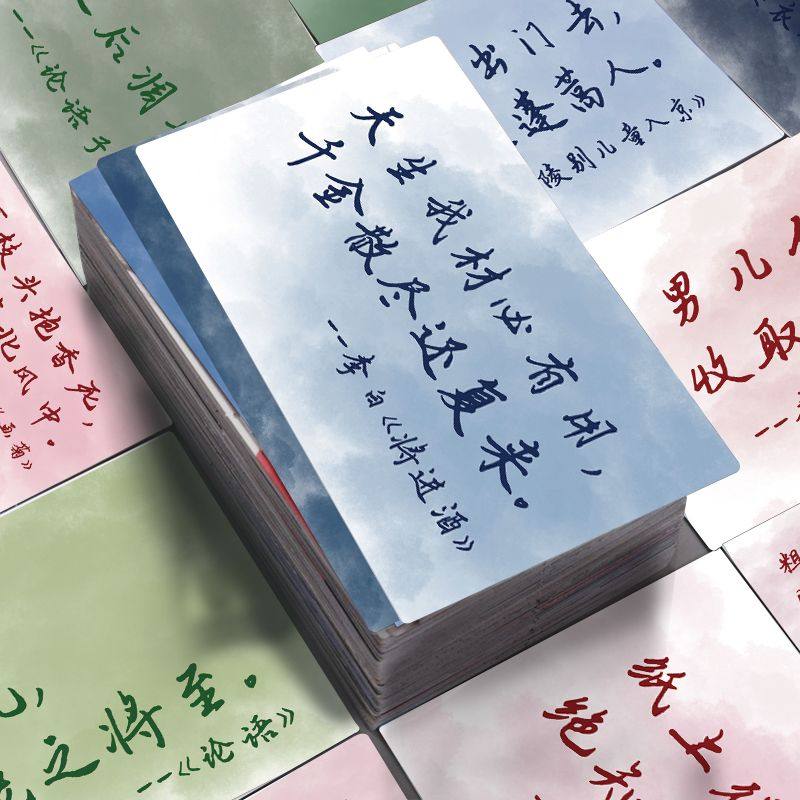 后凋
--《论语 子
出门去,
蓬蒿人。
陵别儿童入京》
天生我材必有用,
千金散尽还复来。
--李白《将进酒》
枝头抱香死,
北风中。
画菊》
男儿
收取
--
粗
之将至。
--《论语》
纸上
绝知